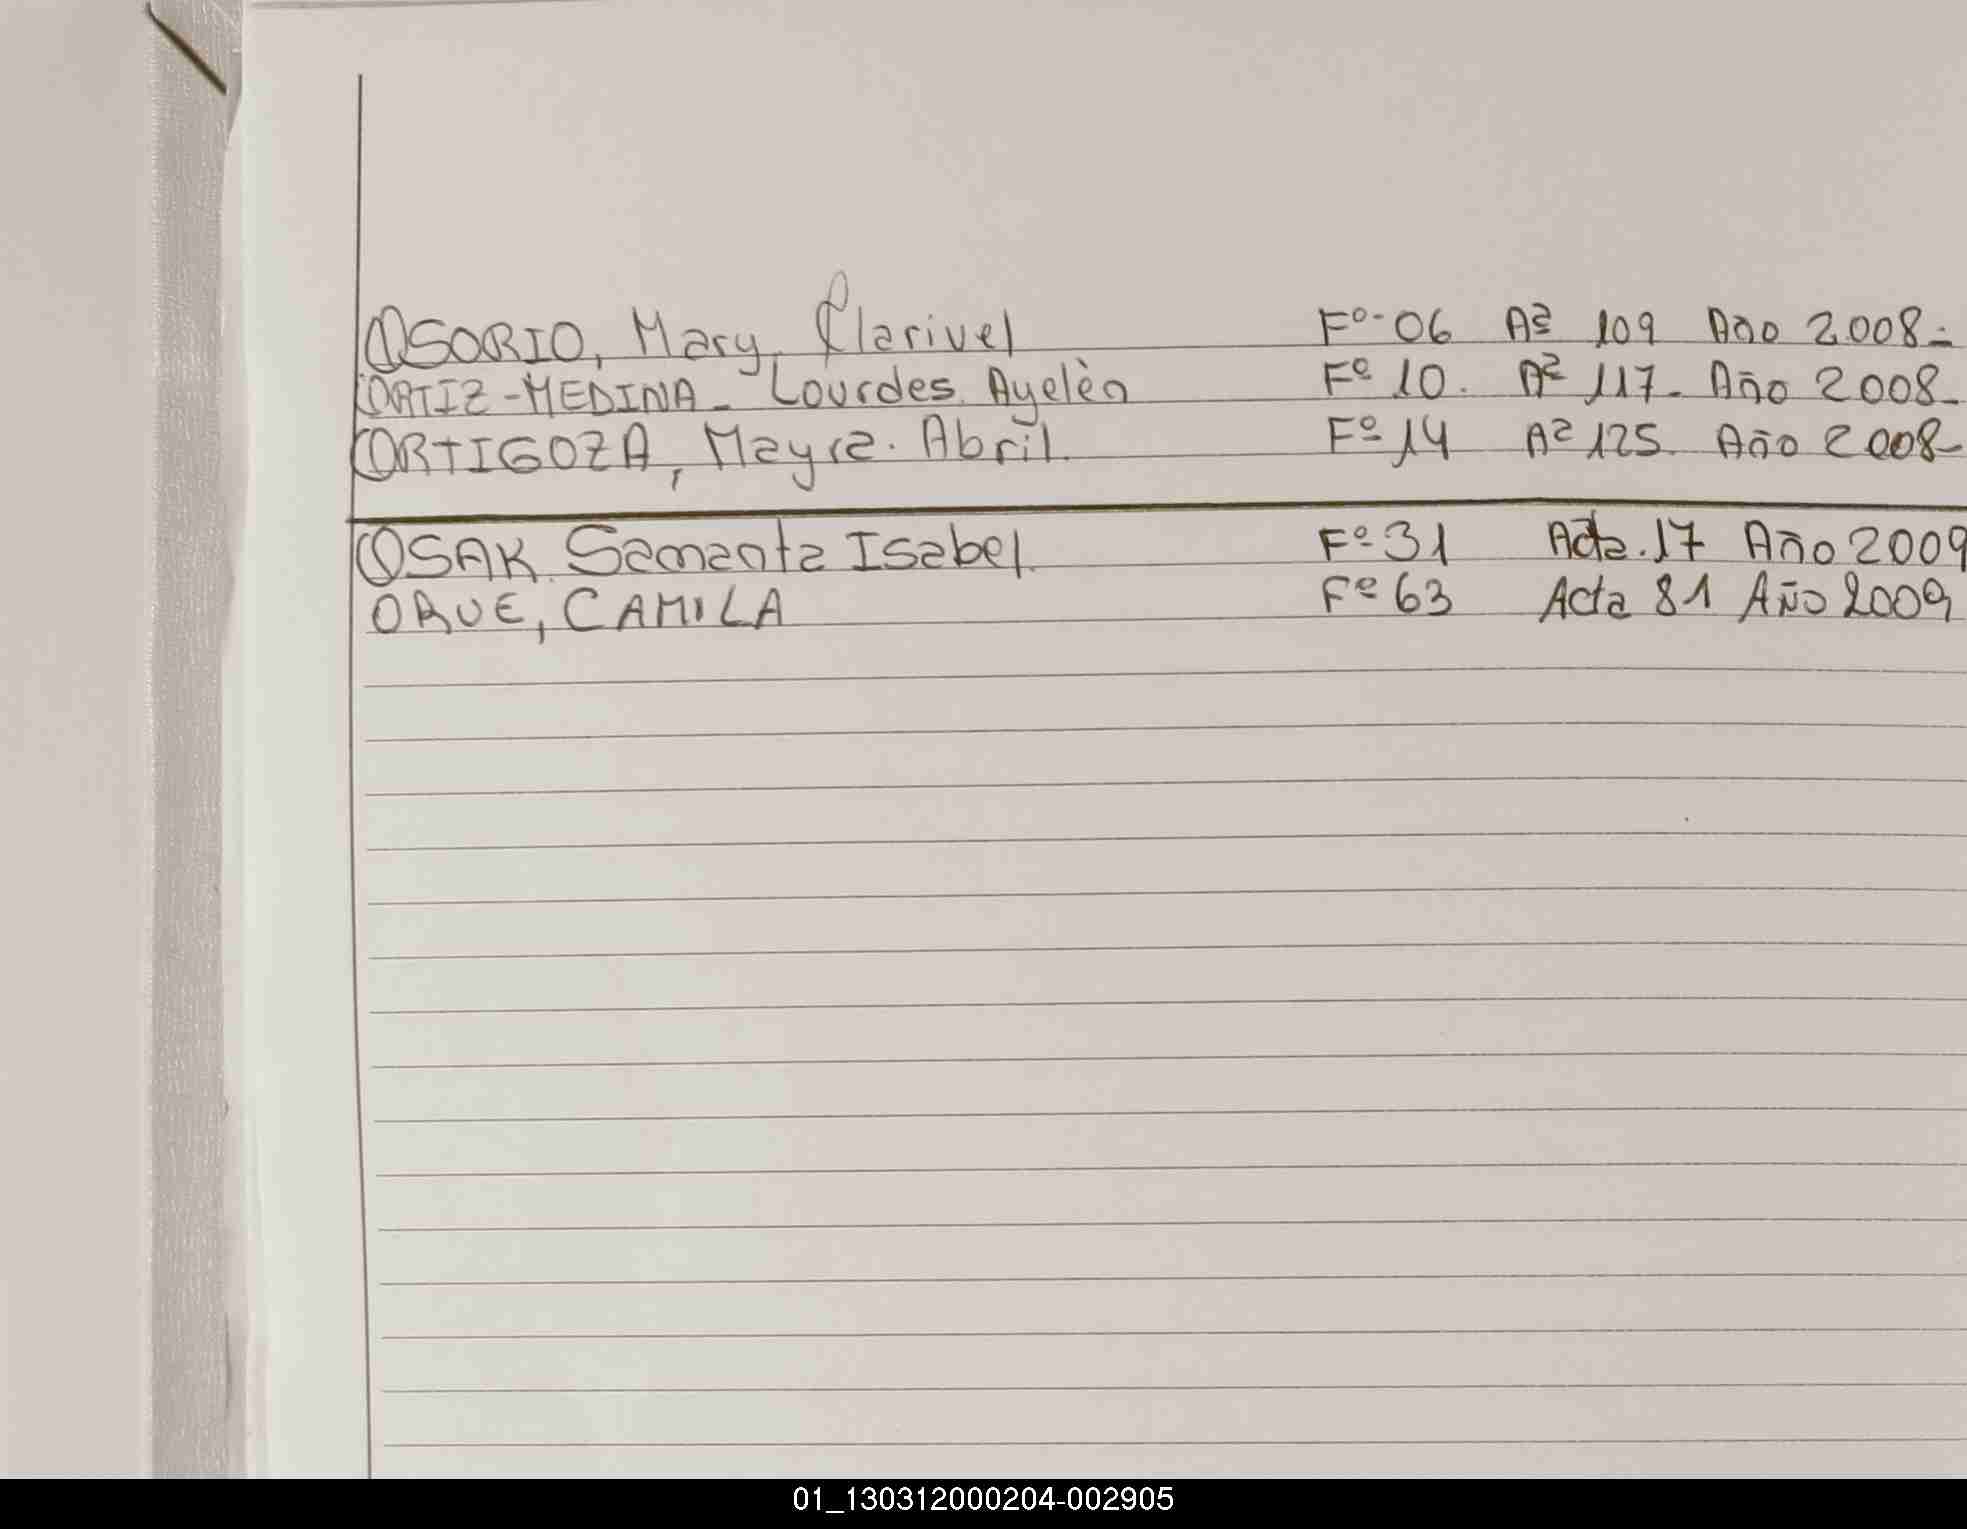 OSORIO, Mary Clarivel Fº 06 Aº 109 Año 2008-
ORTIZ-MEDINA- Lourdes Ayelèn Fº 10. Aº 117- Año 2008-
ORTIGOZA, Mayra. Abril. Fº 14 Aº 125. Año 2008-
OSAK Samanta Isabel. Fº 31 Acta.17 Año 2009
ORUE, CAMILA Fº 63 Acta 81 AÑO 2009
01_130312000204-002905